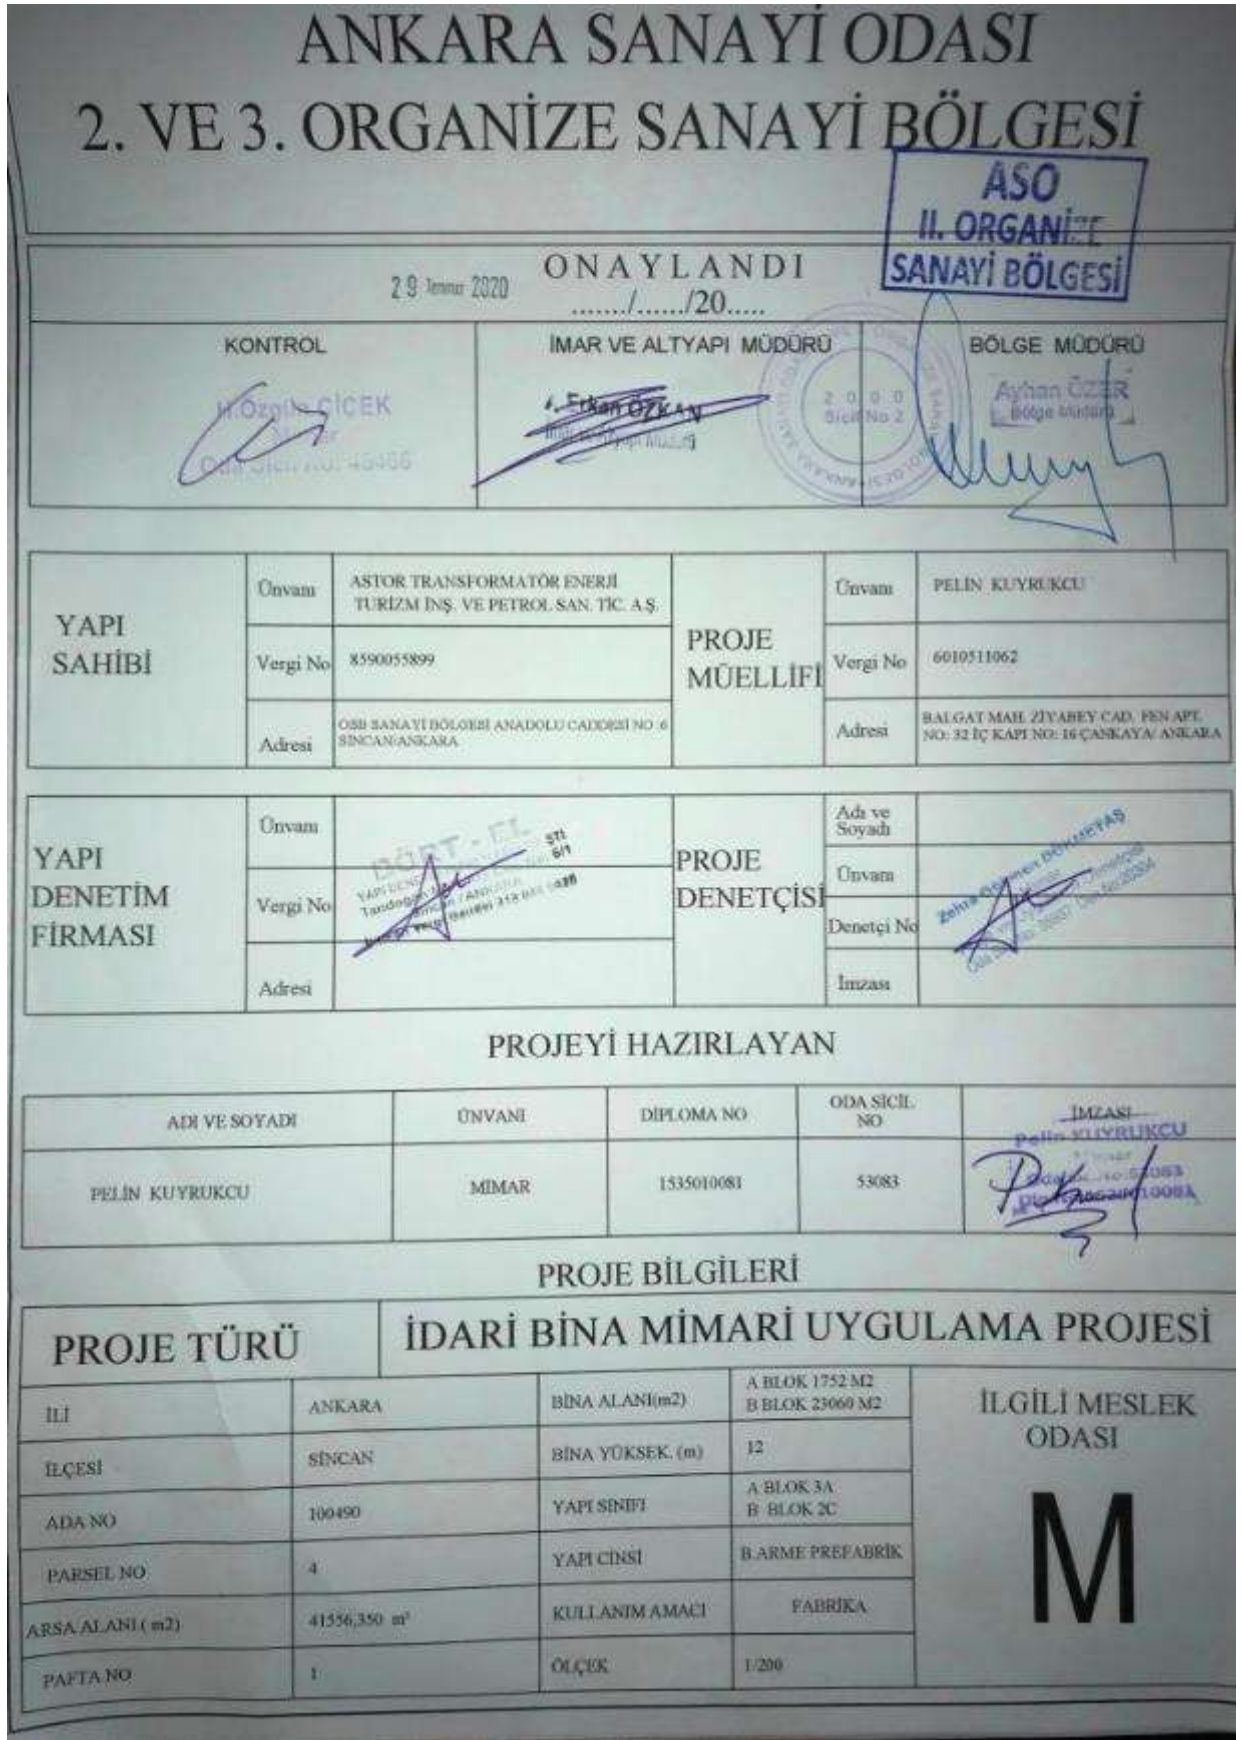 ANKARA SANAYİ ODASI
2. VE 3. ORGANİZE SANAYİ BÖLGESİ
ASO
II. ORGANİZE
SANAYİ BÖLGESİ
ONAYLANDI
29 Temmuz 2020
......./....../20.....
KONTROL
İMAR VE ALTYAPI MÜDÜRÜ
BÖLGE MÜDÜRÜ
H.Özgün ÇİÇEK
Oda Sicil No: 45466
Erkan ÖZKAN
İmar ve Altyapı Müdürü
2000
Sicil No 2
Ayhan ÖZER
Bölge Müdürü
YAPI
SAHİBİ
Ünvanı
ASTOR TRANSFORMATÖR ENERJİ
TURİZM İNŞ. VE PETROL SAN. TİC. A.Ş.
Vergi No
8590055899
Adresi
OSB SANAYİ BÖLGESİ ANADOLU CADDESİ NO :6
SİNCAN/ANKARA
PROJE
MÜELLİFİ
Ünvanı
PELİN KUYRUKCU
Vergi No
6010511062
Adresi
BALGAT MAH. ZİYABEY CAD. FEN APT.
NO: 32 İÇ KAPI NO: 16 ÇANKAYA/ ANKARA
YAPI
DENETİM
FİRMASI
Ünvanı
Vergi No
Adresi
DÖRT - EL
ŞTİ
6/1
Sincan / ANKARA
PROJE
DENETÇİSİ
Adı ve
Soyadı
Ünvanı
Denetçi No
İmzası
PROJEYİ HAZIRLAYAN
ADI VE SOYADI
ÜNVANI
DİPLOMA NO
ODA SİCİL
NO
İMZASI
PELİN KUYRUKCU
MİMAR
1535010081
53083
Pelin KUYRUKCU
PROJE BİLGİLERİ
PROJE TÜRÜ
İDARİ BİNA MİMARİ UYGULAMA PROJESİ
İLİ
ANKARA
BİNA ALANI(m2)
A BLOK 1752 M2
B BLOK 23060 M2
İLÇESİ
SİNCAN
BİNA YÜKSEK. (m)
12
ADA NO
100490
YAPI SINIFI
A BLOK 3A
B BLOK 2C
PARSEL NO
4
YAPI CİNSİ
B.ARME PREFABRİK
ARSA ALANI ( m2)
41556,350 m²
KULLANIM AMACI
FABRİKA
PAFTA NO
1
ÖLÇEK
1/200
İLGİLİ MESLEK
ODASI
M